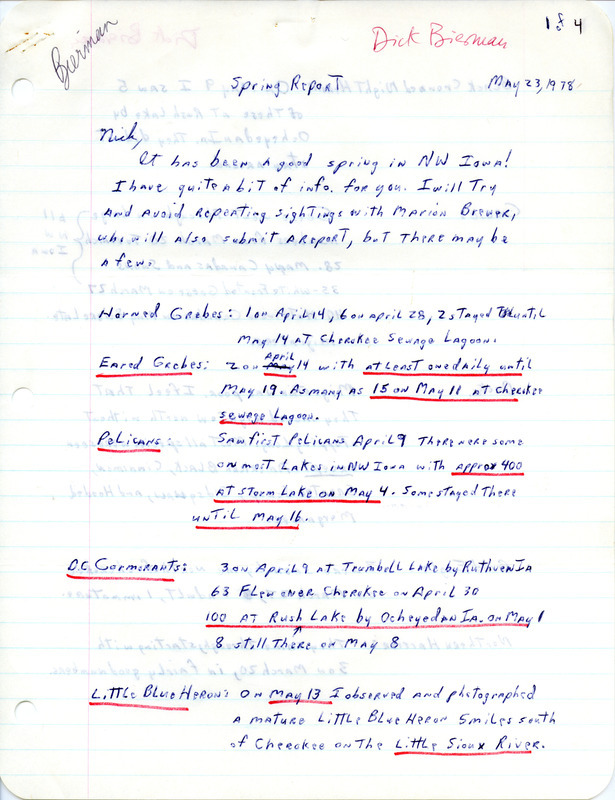 Bierman
Dick Bierman
1 of 4
Spring Report May 23, 1978
Nick,
It has been a good spring in NW Iowa!
I have quite a bit of info. for you. I will Try
and avoid repeating sightings with Marion Brewer,
who will also submit a report, but there may be
a few.
Horned Grebes: 1 on April 14, 6 on april 28, 2 stayed until
May 14 at Cherokee Sewage Lagoon.
Eared Grebes: 2 on April 14 with at least one daily until
May 19. As many as 15 on May 11 at Cherokee
sewage Lagoon.
Pelicans: Saw first Pelicans April 9 There were some
on most Lakes in NW Iowa with approx 400
at Storm Lake on May 4. Some stayed there
until May 16.
D.C. Cormorants: 3 on April 9 at Trumbell Lake by Ruthven IA
63 Flew over Cherokee on April 30
100 at Rush Lake by Ocheyedan IA. on May 1
8 still There on May 8
Little Blue Heron: On May 13 I observed and photographed
a mature Little Blue Heron 5 miles south
of Cherokee on the Little Sioux River.